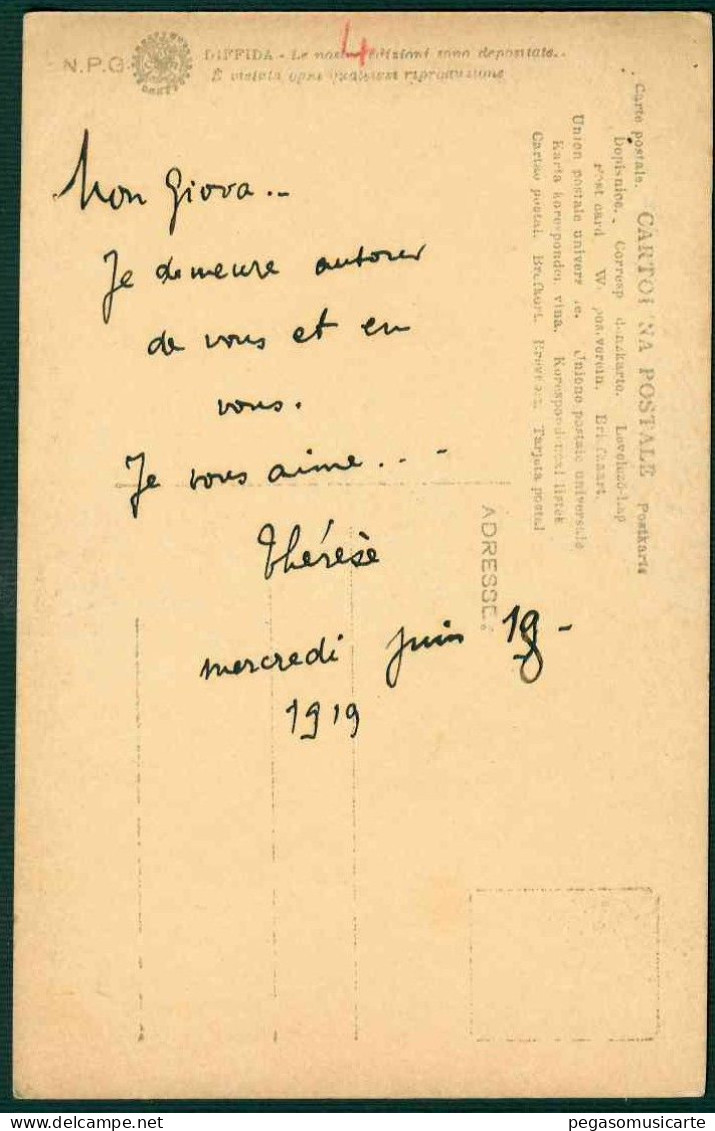 N.P.G.
DIFFIDA - Le nostre edizioni sono depositate.
È vietata ogni qualsiasi riproduzione
4
Mon Giova..
Je demeure autour
de vous et en
vous.
Je vous aime...-
Thérèse
mercredi juin 18-
1919
Carte postale. CARTOLINA POSTALE Postkarte
Dopisnice. Corresp denzkarte. Levelezö-Lap
Post card. W postverein. Briefkaart.
Union postale universelle. Unione postale universale
Karta korespondencyina. Korespondenzni listek
Cartao postal. Brefkort. Brevkort. Tarjeta postal
ADRESSE:
pegasomusicarte